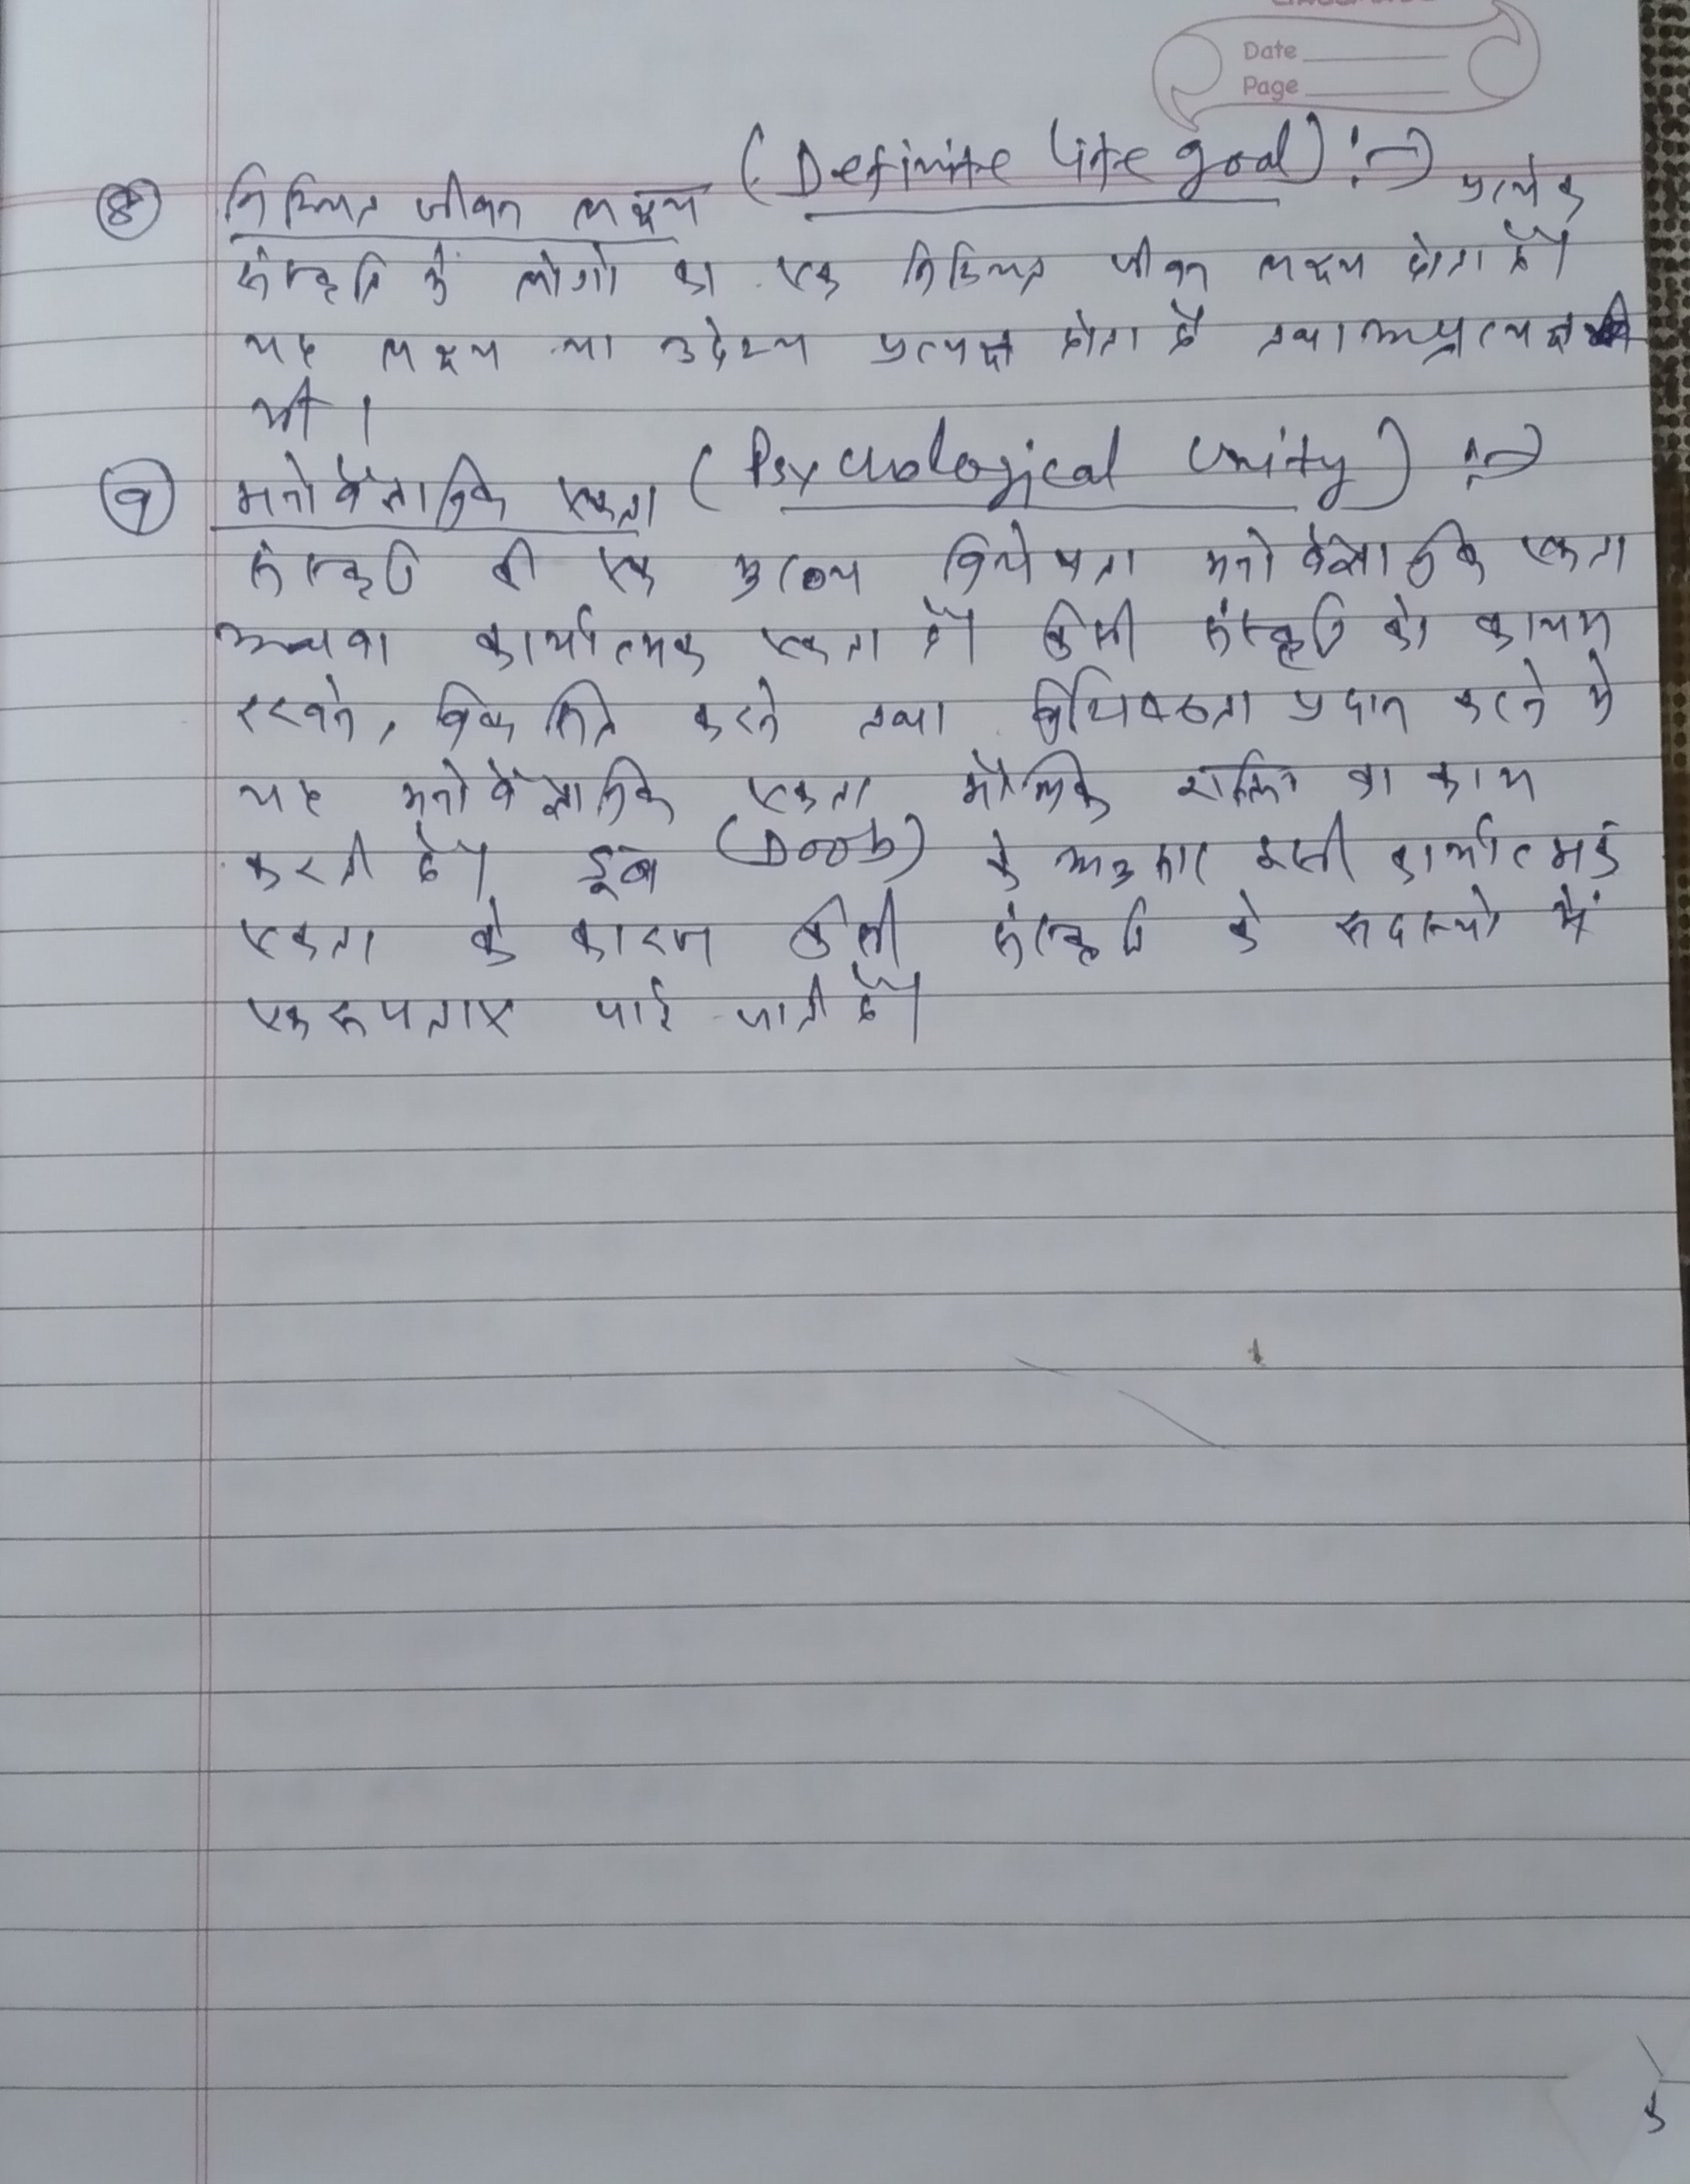 Date
Page
⑧ निश्चित जीवन लक्ष्य (Definite life goal) :→ प्रत्येक
संस्कृति के लोगो का एक निश्चित जीवन लक्ष्य होता है।
यह लक्ष्य या उद्देश्य प्रत्यक्ष होता है तथा अप्रत्यक्ष
भी।
⑨ मनोवैज्ञानिक एकता (Psychological Unity) :→
संस्कृति की एक मुख्य विशेषता मनोवैज्ञानिक एकता
अथवा कार्यात्मक एकता है। किसी संस्कृति को कायम
रखने, विकसित करने तथा विशिष्ठता प्रदान करने मे
यह मनोवैज्ञानिक एकता मौलिक शक्ति का काम
करती है। डूब (Doob) के अनुसार इसी कार्यात्मक
एकता के कारण किसी संस्कृति के सदस्यो में
एकरूपताए पाई जाती है।